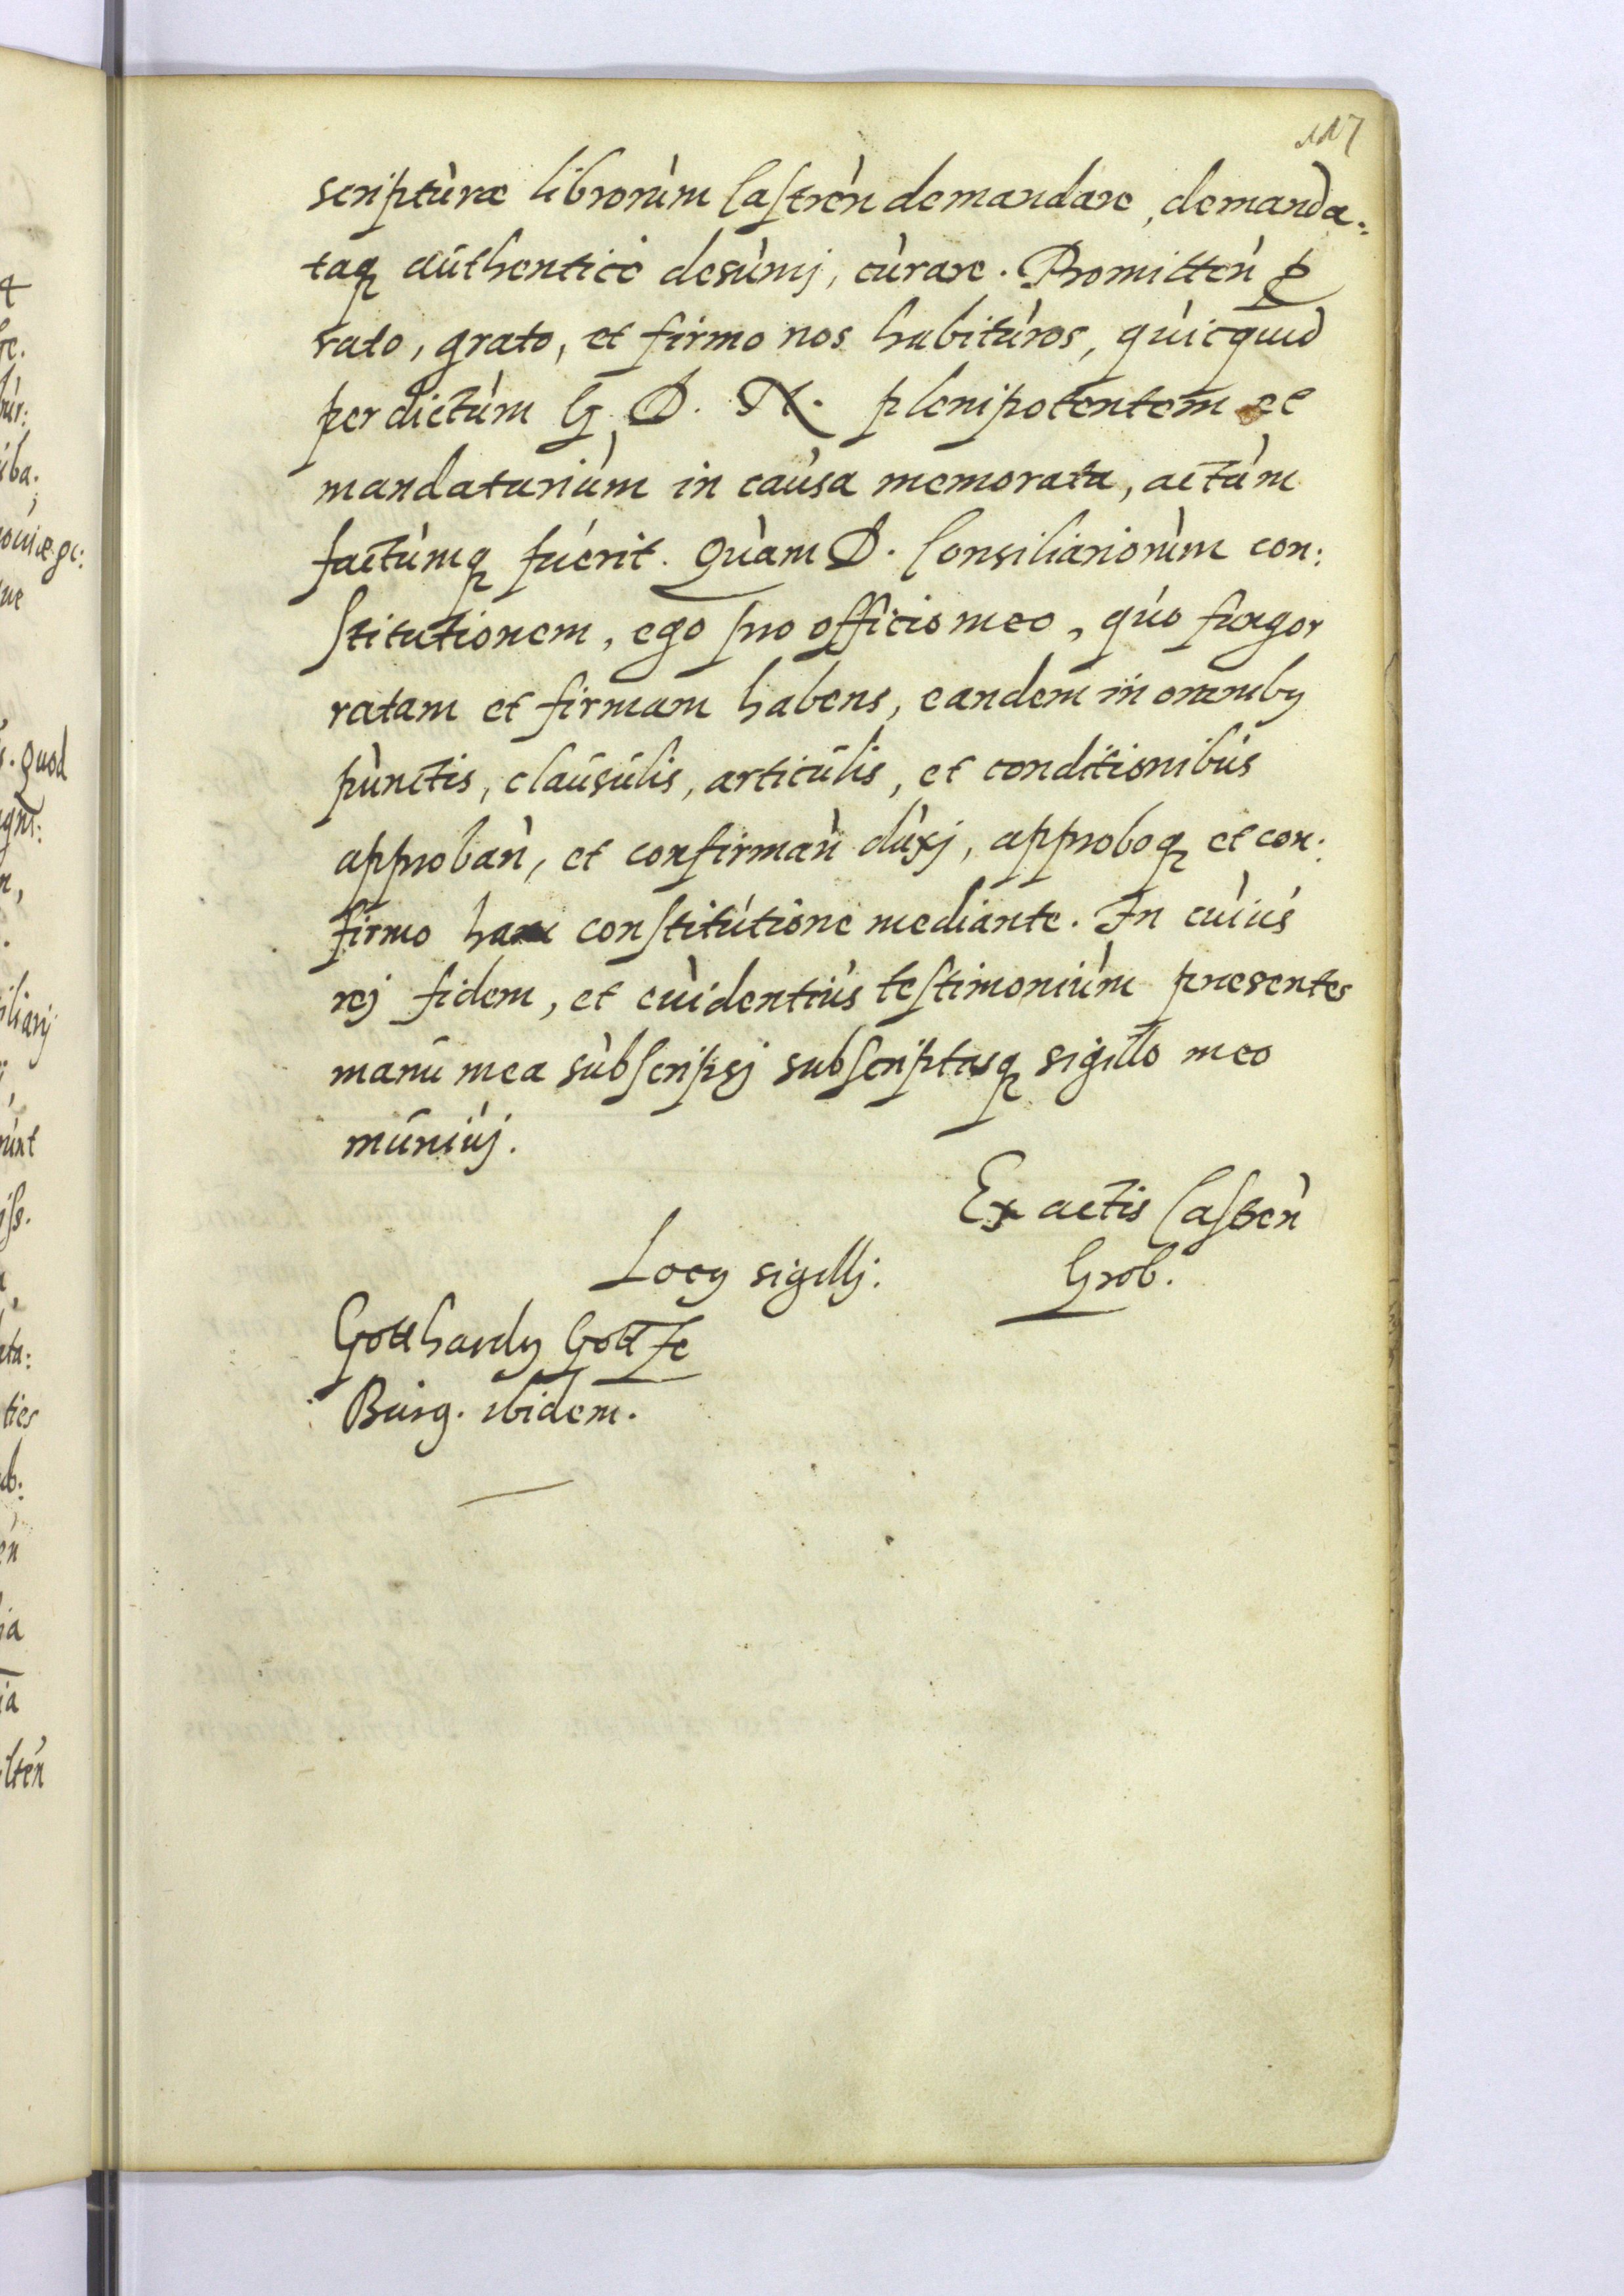 117
scripturæ librorum Castren demandare, demanda:
taq authentice desumj, curare. Promitten p
rato, grato, et firmo nos habituros, quicquid
per dictum G. D. N. plenipotentem et
mandatarium in causa memorata, actum
factumq fuerit. Quam D. Consiliariorum con:
stitutionem, ego pro officio meo, quo fungor
ratam et firmam habens, eandem in omniby
punctis, clausulis, articulis, et conditionibus
approban, et confirman duxj, approboq et con:
firmo hac constitutione mediante. In cuius
rej fidem, et euidentius testimonium presentes
manu mea subscripsj subscriptasq sigillo meo
muniuj.
Ex actis Castren
Locy sigillj. Grob.
Gotthardy Gottze
Burg. ibidem.